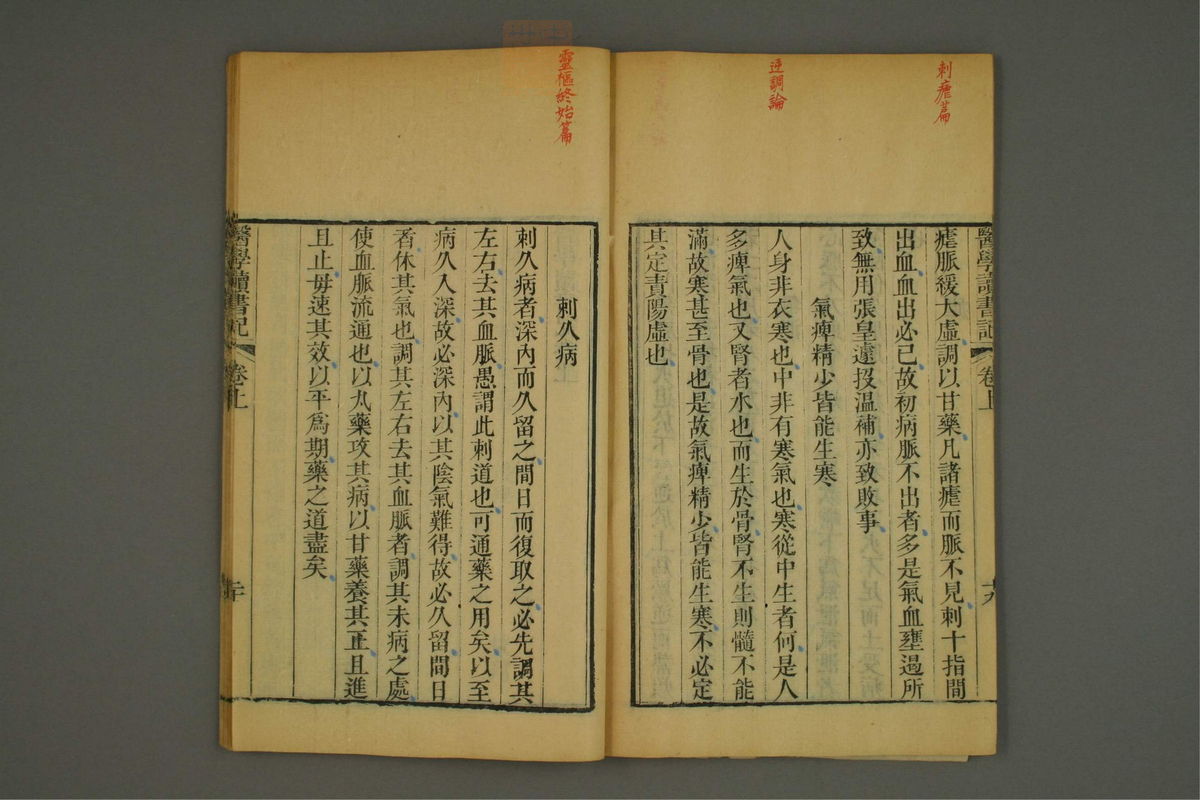 刺瘧篇
逆調論
醫學讀書記
卷上
十九
瘧脈緩大虛調以甘藥凡諸瘧而脈不見刺十指間
出血血出必已故初病脈不出者多是氣血壅遏所
致無用張皇遽投温補亦致敗事
氣痺精少皆能生寒
人身非衣寒也中非有寒氣也寒從中生者何是人
多痺氣也又腎者水也而生於骨腎不生則髓不能
滿故寒甚至骨也是故氣痺精少皆能生寒不必定
其定責陽虛也
靈樞終始篇
刺久病
刺久病者深內而久留之間日而復取之必先調其
左右去其血脈愚謂此刺道也可通藥之用矣以至
病久入深故必深內以其陰氣難得故必久留間日
者休其氣也調其左右去其血脈者調其未病之處
使血脈流通也以丸藥攻其病以甘藥養其正且進
且止毋速其效以平爲期藥之道盡矣
醫學讀書記
卷上
二十